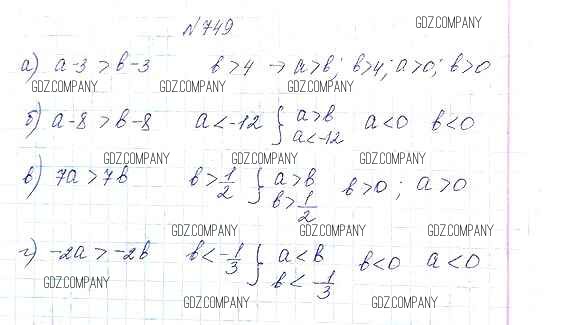 №749
GDZ.COMPANY
а) a-3 > b-3 b>4 → a>b; b>4; a>0; b>0
GDZ.COMPANY GDZ.COMPANY GDZ.COMPANY
б) a-8 > b-8 a<-12 { a>b a<-12 a<0 b<0
GDZ.COMPANY GDZ.COMPANY GDZ.COMPANY
в) 7a > 7b b>1/2 { a>b b>1/2 b>0; a>0
GDZ.COMPANY GDZ.COMPANY GDZ.COMPANY
г) -2a > -2b b<-1/3 { a<b b<-1/3 b<0 a<0
GDZ.COMPANY
GDZ.COMPANY GDZ.COMPANY